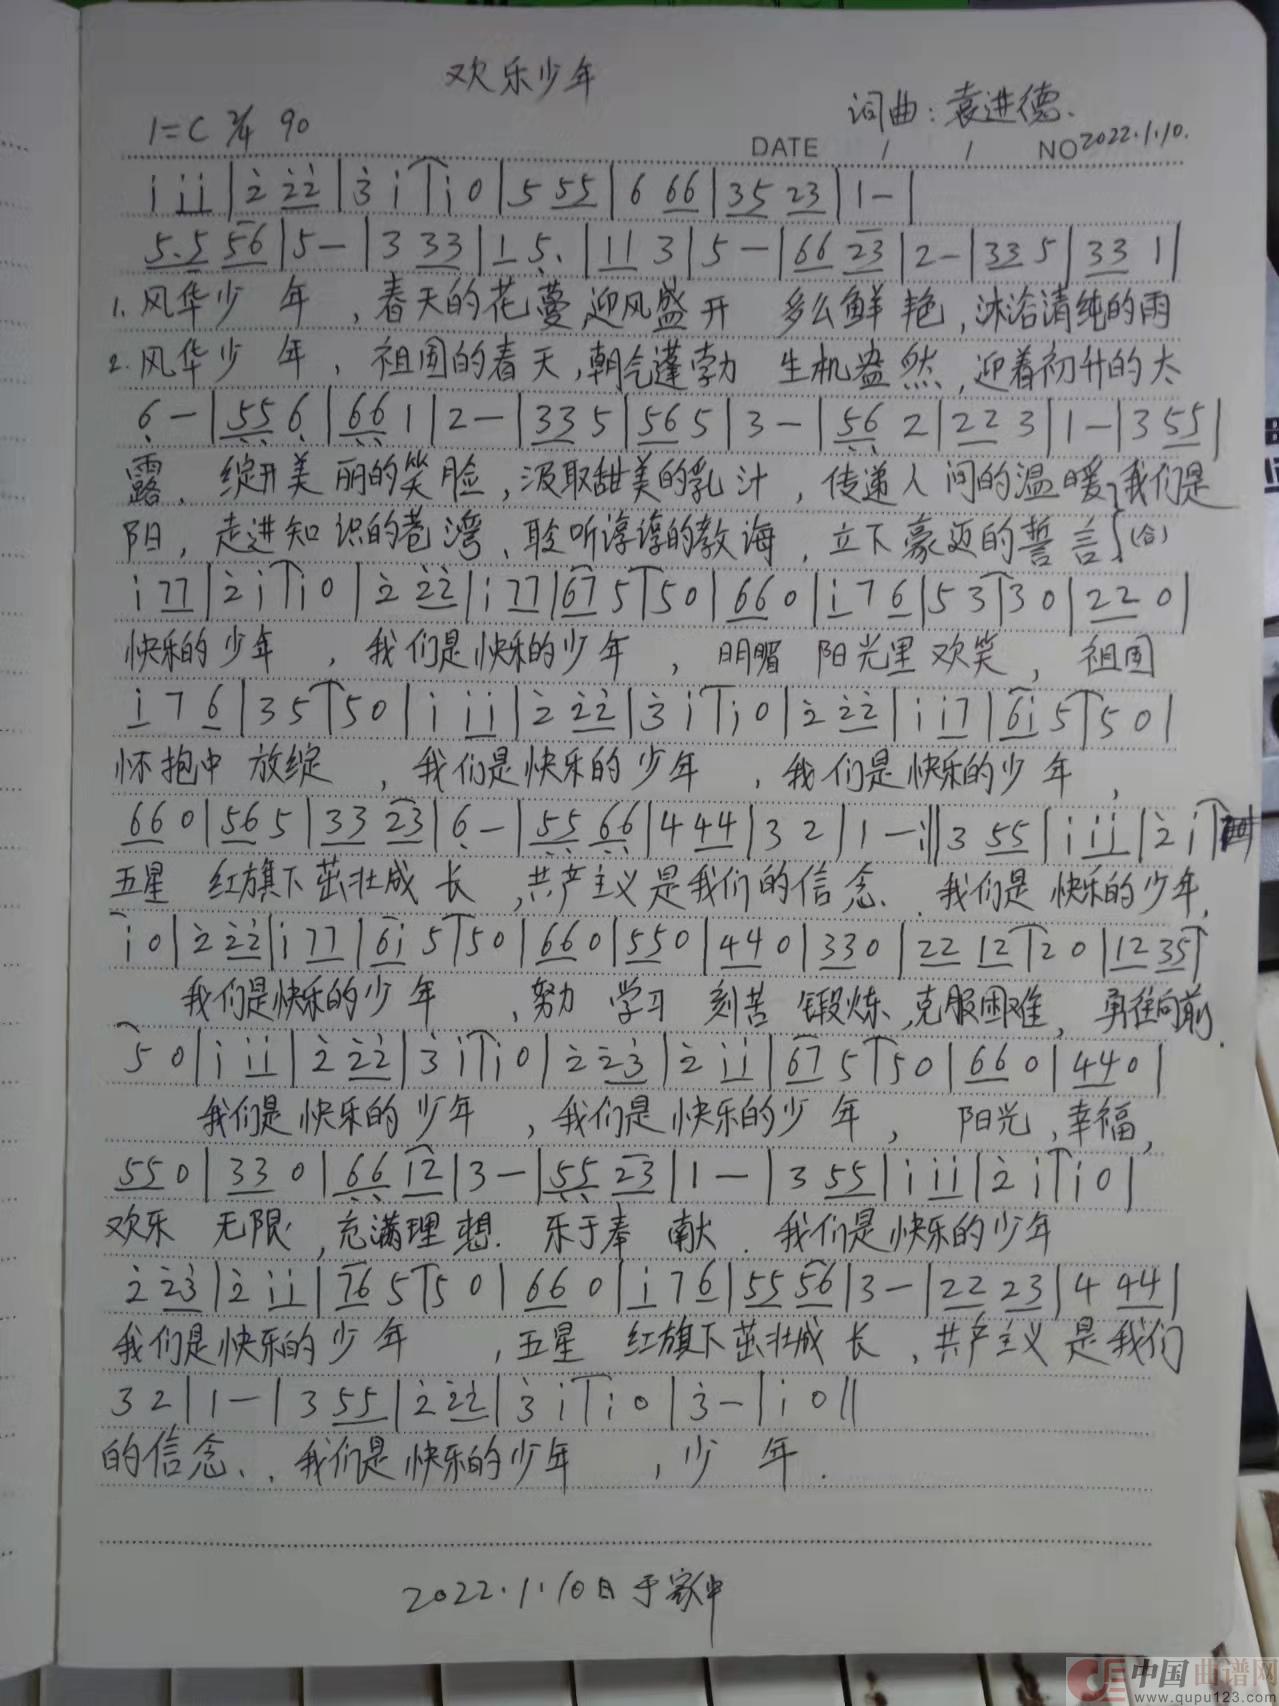 欢乐少年
词曲：袁进德.
1=C 2/4 90
DATE / / NO 2022.1.10.
i i i | 2 2 2 | 3 i | i 0 | 5 5 5 | 6 6 6 | 3 5 2 3 | 1 - |
5. 5 5 6 | 5 - | 3 3 3 | 1 5. | 1 1 3 | 5 - | 6 6 2 3 | 2 - | 3 3 5 | 3 3 1 |
1. 风华少 年 ，春天的花蔓迎风盛开 多么鲜艳，沐浴清纯的雨
2. 风华少 年 ，祖国的春天，朝气蓬勃 生机盎然，迎着初升的太
6 - | 5 5 6 | 6 6 1 | 2 - | 3 3 5 | 5 6 5 | 3 - | 5 6 2 | 2 2 3 | 1 - | 3 5 5 |
露、绽开美丽的笑脸，汲取甜美的乳汁，传递人间的温暖 我们是
阳，走进知识的港湾、聆听谆谆的教诲，立下豪迈的誓言 (合)
i 7 7 | 2 i | i 0 | 2 2 2 | i 7 7 | 6 7 5 | 5 0 | 6 6 0 | i 7 6 | 5 3 | 3 0 | 2 2 0 |
快乐的少年 ，我们是快乐的少年 ，明媚 阳光里欢笑，祖国
i 7 6 | 3 5 | 5 0 | i i i | 2 2 2 | 3 i | i 0 | 2 2 2 | i i 7 | 6 i 5 | 5 0 |
怀抱中 放绽 ，我们是快乐的少年 ，我们是快乐的少年，
6 6 0 | 5 6 5 | 3 3 2 3 | 6 - | 5 5 6 6 | 4 4 4 | 3 2 | 1 - :|| 3 5 5 | i i i | 2 i |
五星 红旗下茁壮成长 ，共产主义是我们的信念、. 我们是快乐的少年，
i 0 | 2 2 2 | i 7 7 | 6 i 5 | 5 0 | 6 6 0 | 5 5 0 | 4 4 0 | 3 3 0 | 2 2 1 2 | 2 0 | 1 2 3 5 |
我们是快乐的少年 ，努力 学习 刻苦 锻炼，克服困难，勇往向前.
5 0 | i i i | 2 2 2 | 3 i | i 0 | 2 2 3 | 2 i i | 6 7 5 | 5 0 | 6 6 0 | 4 4 0 |
我们是快乐的少年 ，我们是快乐的少年， 阳光，幸福，
5 5 0 | 3 3 0 | 6 6 1 2 | 3 - | 5 5 2 3 | 1 - | 3 5 5 | i i i | 2 i | i 0 |
欢乐 无限，充满理想. 乐于奉献. 我们是快乐的少年
2 2 3 | 2 i i | 7 6 5 | 5 0 | 6 6 0 | i 7 6 | 5 5 5 6 | 3 - | 2 2 2 3 | 4 4 4 |
我们是快乐的少年 ，五星 红旗下茁壮成长，共产主义是我们
3 2 | 1 - | 3 5 5 | 2 2 2 | 3 i | i 0 | 3 - | i 0 ||
的信念、. 我们是快乐的少年 ，少 年 .
2022.1.10日于家中
中国曲谱网
www.qupu123.com